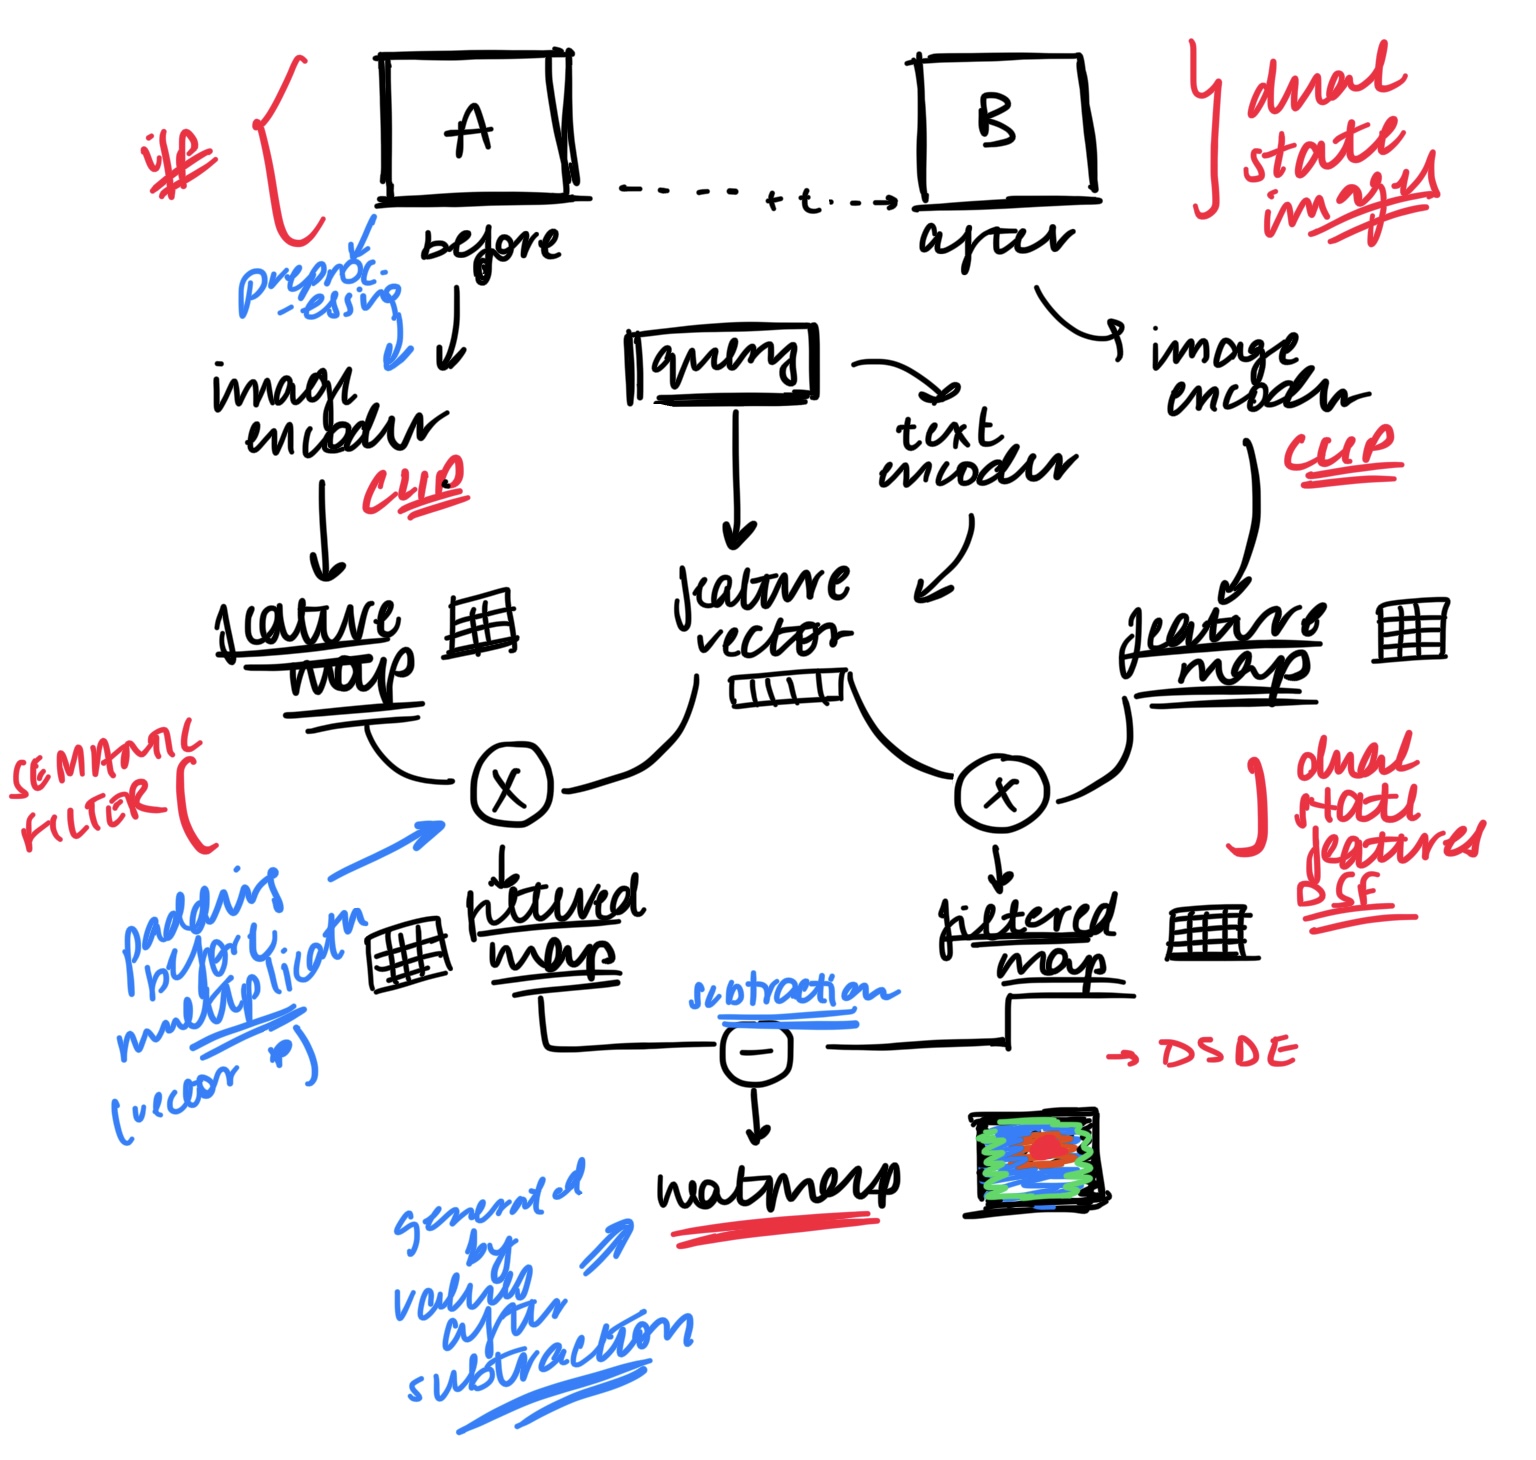 i/p
A
B
dual
state
images
+ t
before
after
preproc-
-essing
image
encoder
CLIP
query
text
encoder
image
encoder
CLIP
feature
map
feature
vector
feature
map
SEMANTIC
FILTER
X
X
dual
state
features
DSF
padding
before
multiplicatn
(vector)
filtered
map
filtered
map
subtraction
-
→ DSDE
heatmap
generated
by
values
after
subtraction